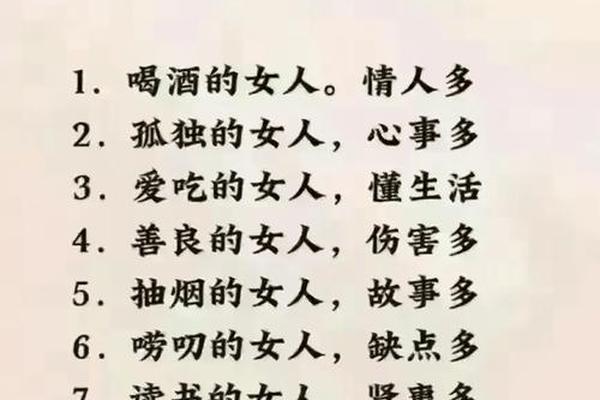 1. 喝酒的女人。情人多
2. 孤独的女人，心事多
3. 爱吃的女人，懂生活
4. 善良的女人，伤害多
5. 抽烟的女人，故事多
6. 唠叨的女人，缺点多
7. 读书的女人，贤惠多